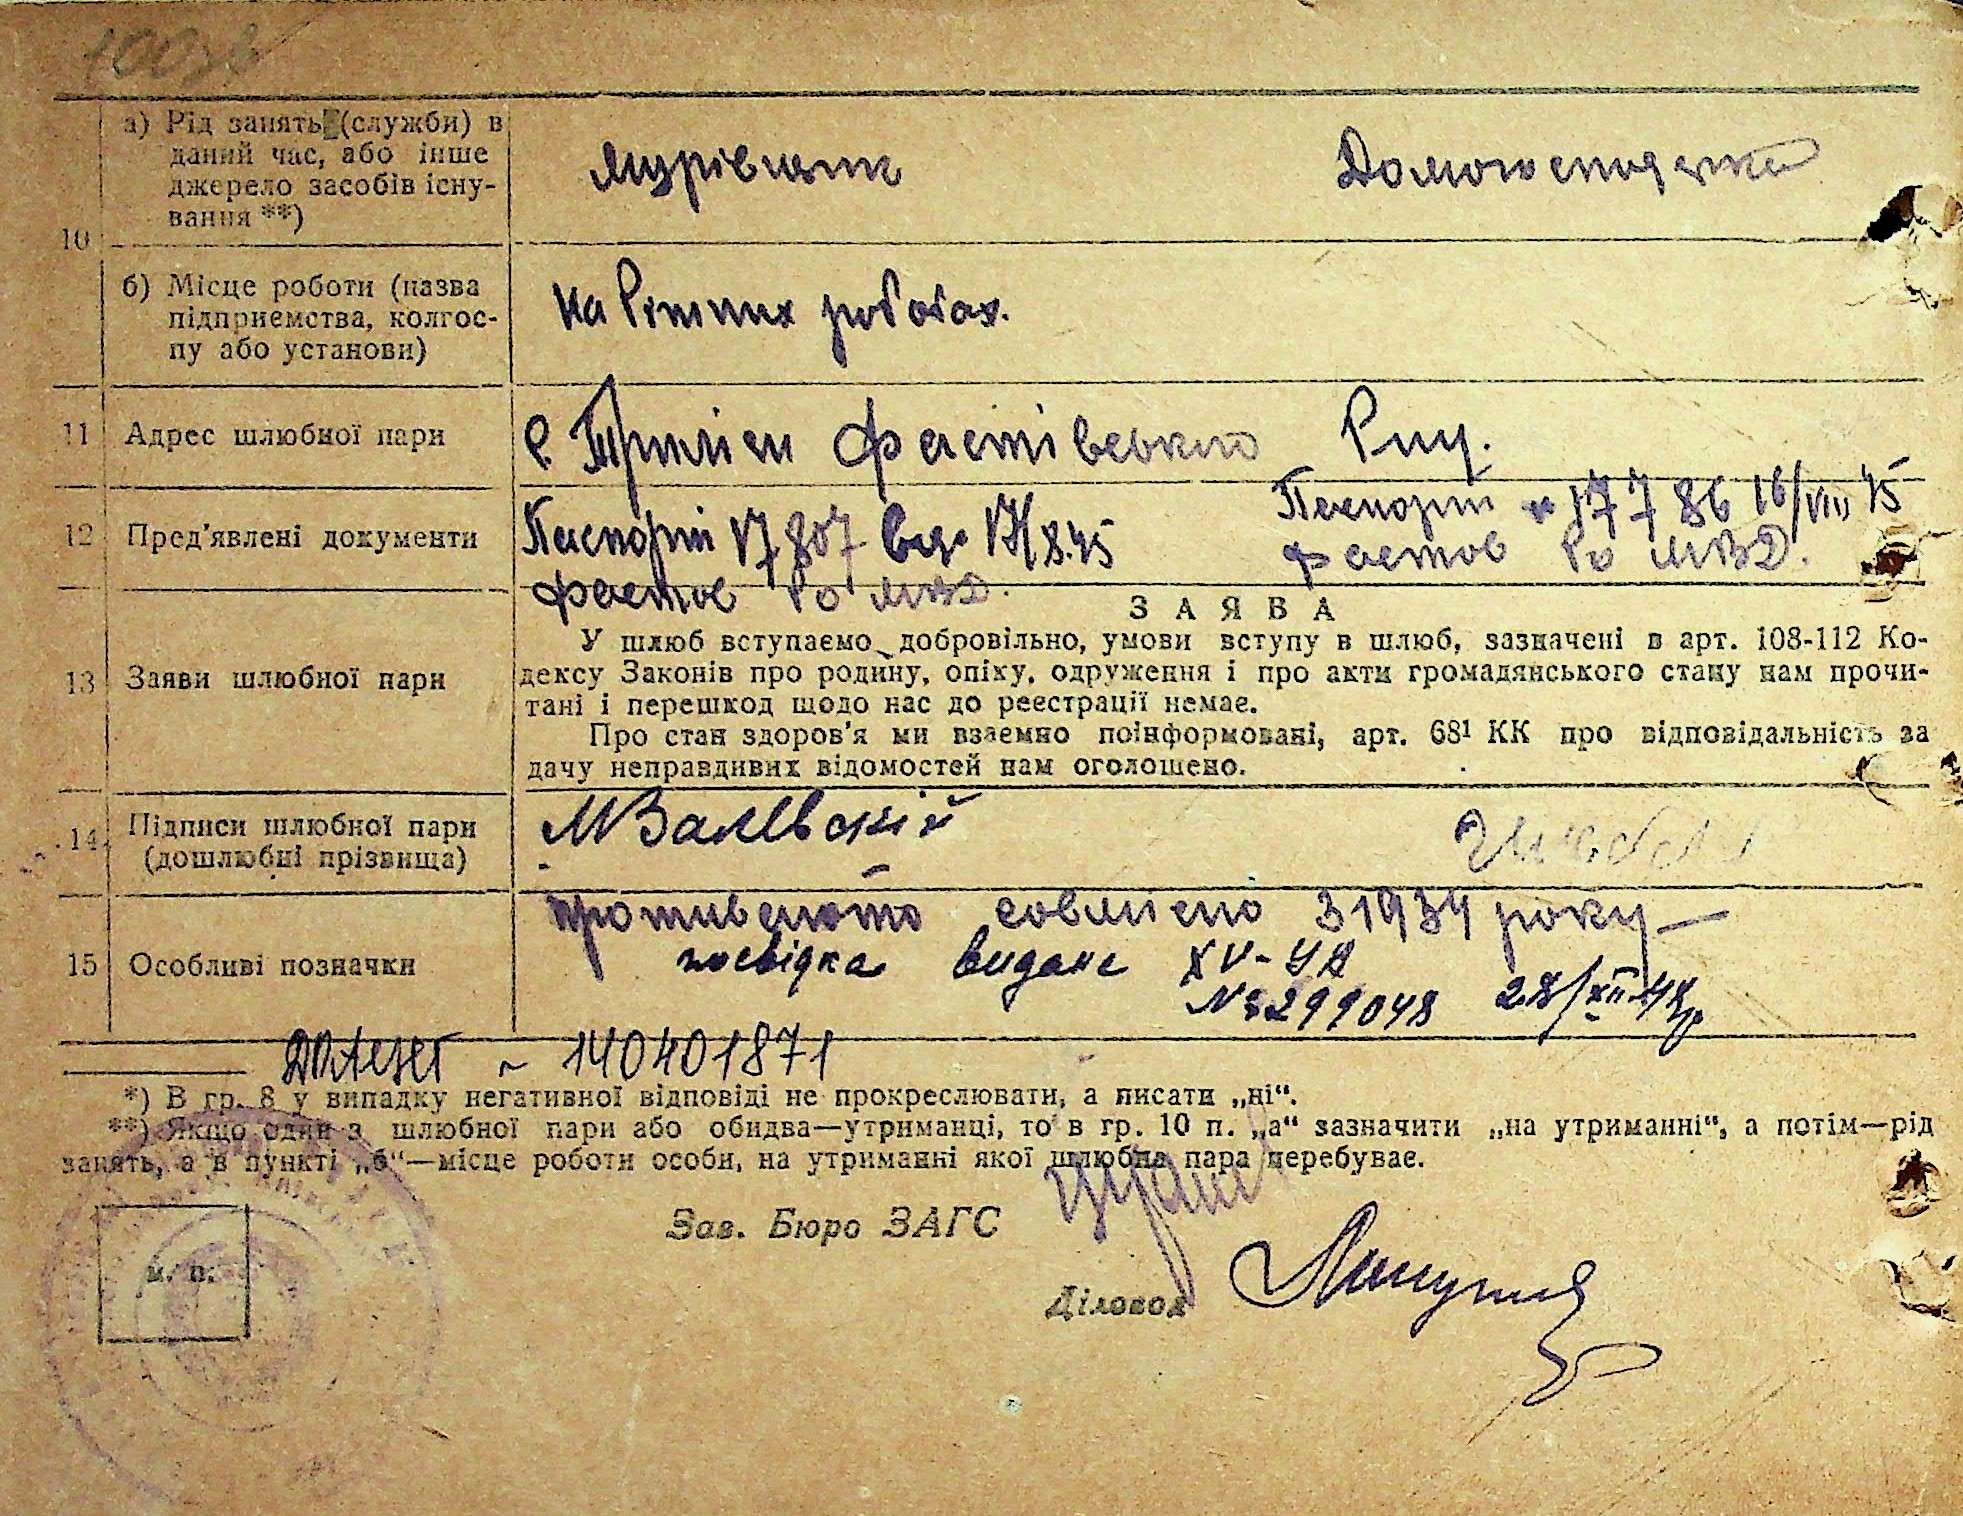 а) Рід занять (службии) в
даний час, або інше
джерело засобів існу-
вання **)
Мурівщик
Домогосподарка
10
б) Місце роботи (назва
підприємства, колгос-
пу або установи)
на Різних роботах.
11 Адрес шлюбної пари
с. Фастівського Рну.
12 Пред'явлені документи
Паспорт 17807 вид. 17/8.45
Фастов Ро МВД.
Паспорт № 17786 16/VIII 45
Фастов Ро МВД.
13 Заяви шлюбної пари
ЗАЯВА
У шлюб вступаємо добровільно, умови вступу в шлюб, зазначені в арт. 108-112 Ко-
дексу Законів про родину, опіку, одруження і про акти громадянського стану нам прочи-
тані і перешкод щодо нас до реєстрації немає.
Про стан здоров'я ми взаємно поінформовані, арт. 68¹ КК про відповідальність за
дачу неправдивих відомостей нам оголошено.
14 Підписи шлюбної пари
(дошлюбні прізвища)
МВалевский
15 Особливі позначки
З 1934 року —
посвідка видана XV-УЯ
№ 299048 28/XII 48р
~ 140401871
*) В гр. 8 у випадку негативної відповіді не прокреслювати, а писати „ні“.
**) Якщо один з шлюбної пари або обидва—утриманці, то в гр. 10 п. „а“ зазначити „на утриманні“, а потім—рід
занять, а в пункті „б“—місце роботи особи, на утриманні якої шлюбна пара перебуває.
Зав. Бюро ЗАГС
м. п.
Діловод